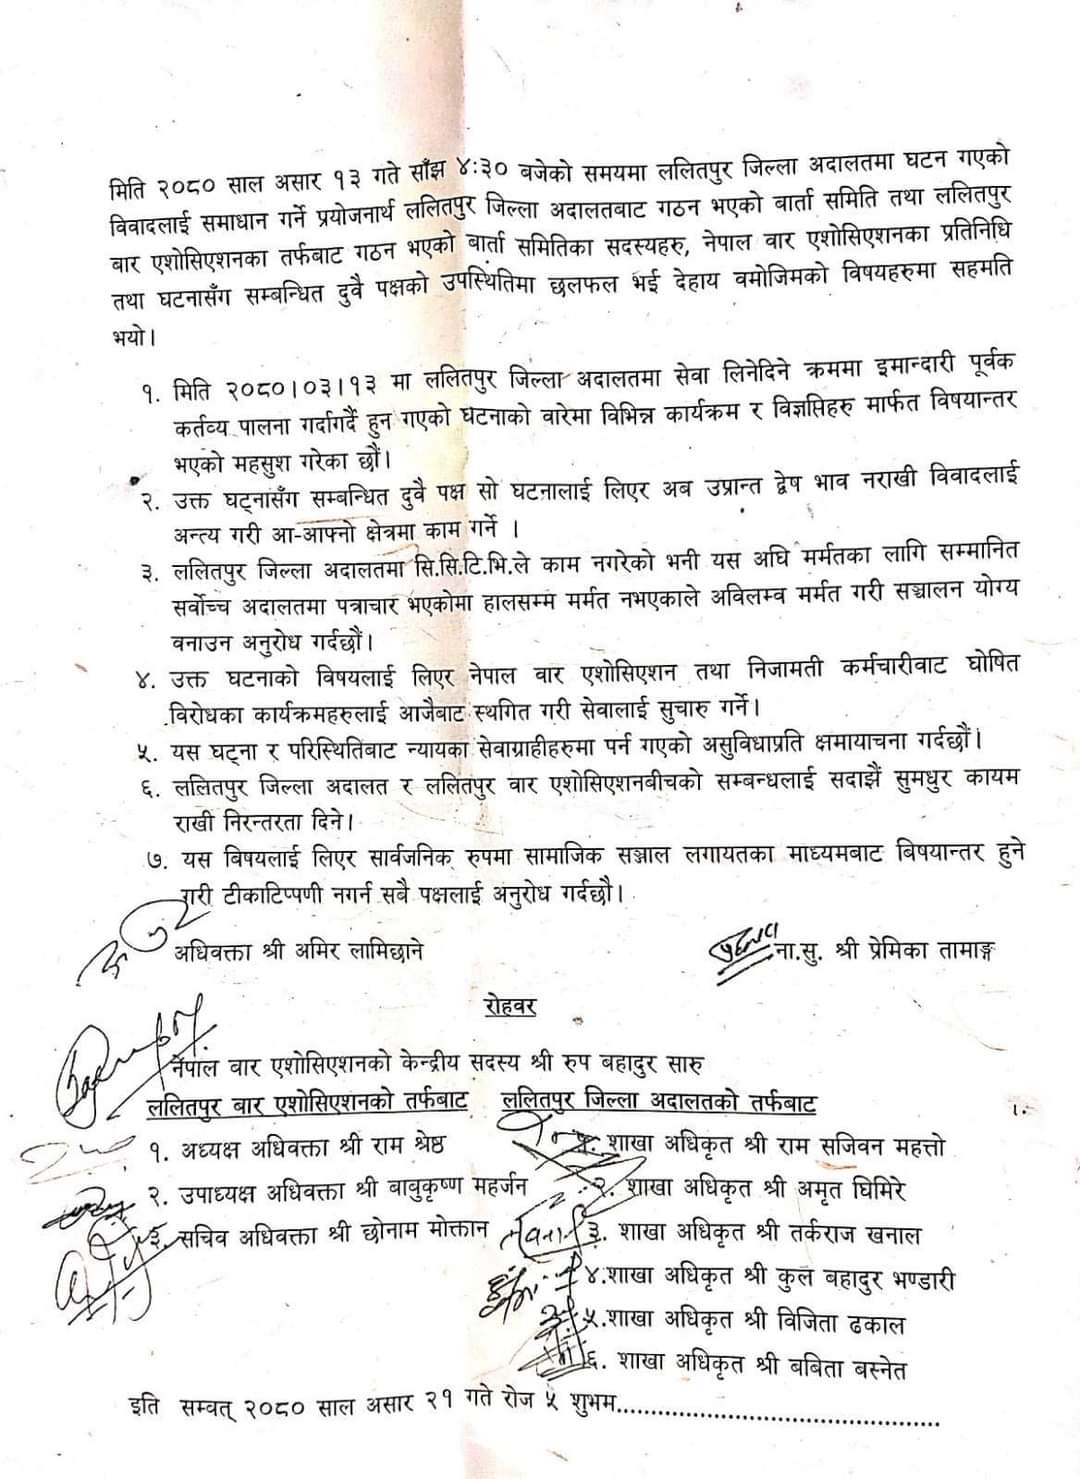 मिति २०८० साल असार १३ गते साँझ ४:३० बजेको समयमा ललितपुर जिल्ला अदालतमा घटन गएको
विवादलाई समाधान गर्ने प्रयोजनार्थ ललितपुर जिल्ला अदालतबाट गठन भएको बार्ता समिति तथा ललितपुर
बार एशोसिएशनका तर्फबाट गठन भएको बार्ता समितिका सदस्यहरु, नेपाल वार एशोसिएशनका प्रतिनिधि
तथा घटनासँग सम्बन्धित दुवै पक्षको उपस्थितिमा छलफल भई देहाय वमोजिमको विषयहरुमा सहमति
भयो।
१. मिति २०८०।०३।१३ मा ललितपुर जिल्ला अदालतमा सेवा लिनेदिने क्रममा इमान्दारी पूर्वक
कर्तव्य पालना गर्दागर्दै हुन गएको घटनाको वारेमा विभिन्न कार्यक्रम र विज्ञप्तिहरु मार्फत विषयान्तर
भएको महसुश गरेका छौं।
२. उक्त घट्नासँग सम्बन्धित दुवै पक्ष सो घटनालाई लिएर अब उप्रान्त द्वेष भाव नराखी विवादलाई
अन्त्य गरी आ-आफ्नो क्षेत्रमा काम गर्ने ।
३. ललितपुर जिल्ला अदालतमा सि.सि.टि.भि.ले काम नगरेको भनी यस अघि मर्मतका लागि सम्मानित
सर्वोच्च अदालतमा पत्राचार भएकोमा हालसम्म मर्मत नभएकाले अविलम्व मर्मत गरी सञ्चालन योग्य
वनाउन अनुरोध गर्दछौं।
४. उक्त घटनाको विषयलाई लिएर नेपाल वार एशोसिएशन तथा निजामती कर्मचारीवाट घोषित
विरोधका कार्यक्रमहरुलाई आजैबाट स्थगित गरी सेवालाई सुचारु गर्ने।
५. यस घट्ना र परिस्थितिबाट न्यायका सेवाग्राहीहरुमा पर्न गएको असुविधाप्रति क्षमायाचना गर्दछौं।
६. ललितपुर जिल्ला अदालत र ललितपुर वार एशोसिएशनबीचको सम्बन्धलाई सदाझैं सुमधुर कायम
राखी निरन्तरता दिने।
७. यस बिषयलाई लिएर सार्वजनिक रुपमा सामाजिक सञ्जाल लगायतका माध्यमबाट बिषयान्तर हुने
गरी टीकाटिप्पणी नगर्न सबै पक्षलाई अनुरोध गर्दछौ।
अधिवक्ता श्री अमिर लामिछाने ना.सु. श्री प्रेमिका तामाङ्ग
रोहवर
नेपाल वार एशोसिएशनको केन्द्रीय सदस्य श्री रुप बहादुर सारु
ललितपुर बार एशोसिएशनको तर्फबाट ललितपुर जिल्ला अदालतको तर्फबाट
१. अध्यक्ष अधिवक्ता श्री राम श्रेष्ठ शाखा अधिकृत श्री राम सजिवन महत्तो
२. उपाध्यक्ष अधिवक्ता श्री बाबुकृष्ण महर्जन २. शाखा अधिकृत श्री अमृत घिमिरे
३. सचिव अधिवक्ता श्री छोनाम मोक्तान ३. शाखा अधिकृत श्री तर्कराज खनाल
४.शाखा अधिकृत श्री कुल बहादुर भण्डारी
५.शाखा अधिकृत श्री विजिता ढकाल
६. शाखा अधिकृत श्री बबिता बस्नेत
इति सम्वत् २०८० साल असार २१ गते रोज ५ शुभम..........................................